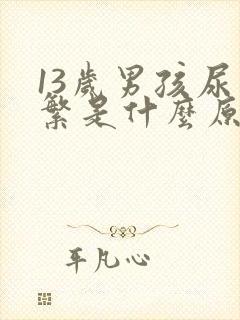 13歲男孩尿
繁是什麼原
平凡心